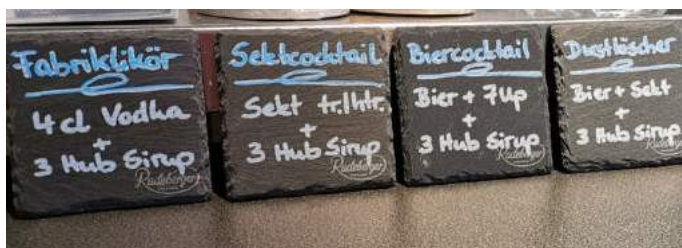 Fabriklikör
4 cl Vodka
+
3 Hub Sirup
Radeberger
Sektcocktail
Sekt tr./htr.
+
3 Hub Sirup
Radeberger
Biercocktail
Bier + 7Up
+
3 Hub Sirup
Radeberger
Durstlöscher
Bier + Sekt
+
3 Hub Sirup
Radeberger